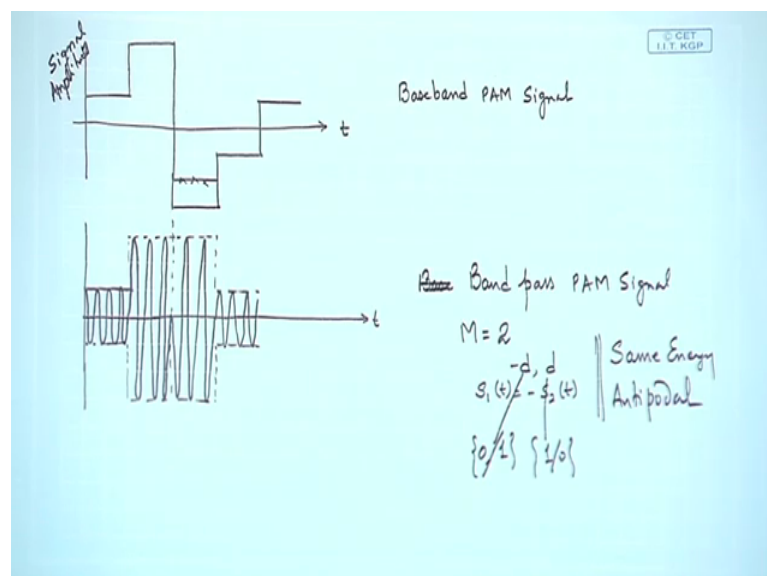 © CET
I.I.T. KGP
Signal
Amplitude
Baseband PAM Signal
t
Band pass PAM Signal
t
M = 2
-d, d
S₁(t) = - S₂(t)
Same Energy
Antipodal
{0/1} {1/0}